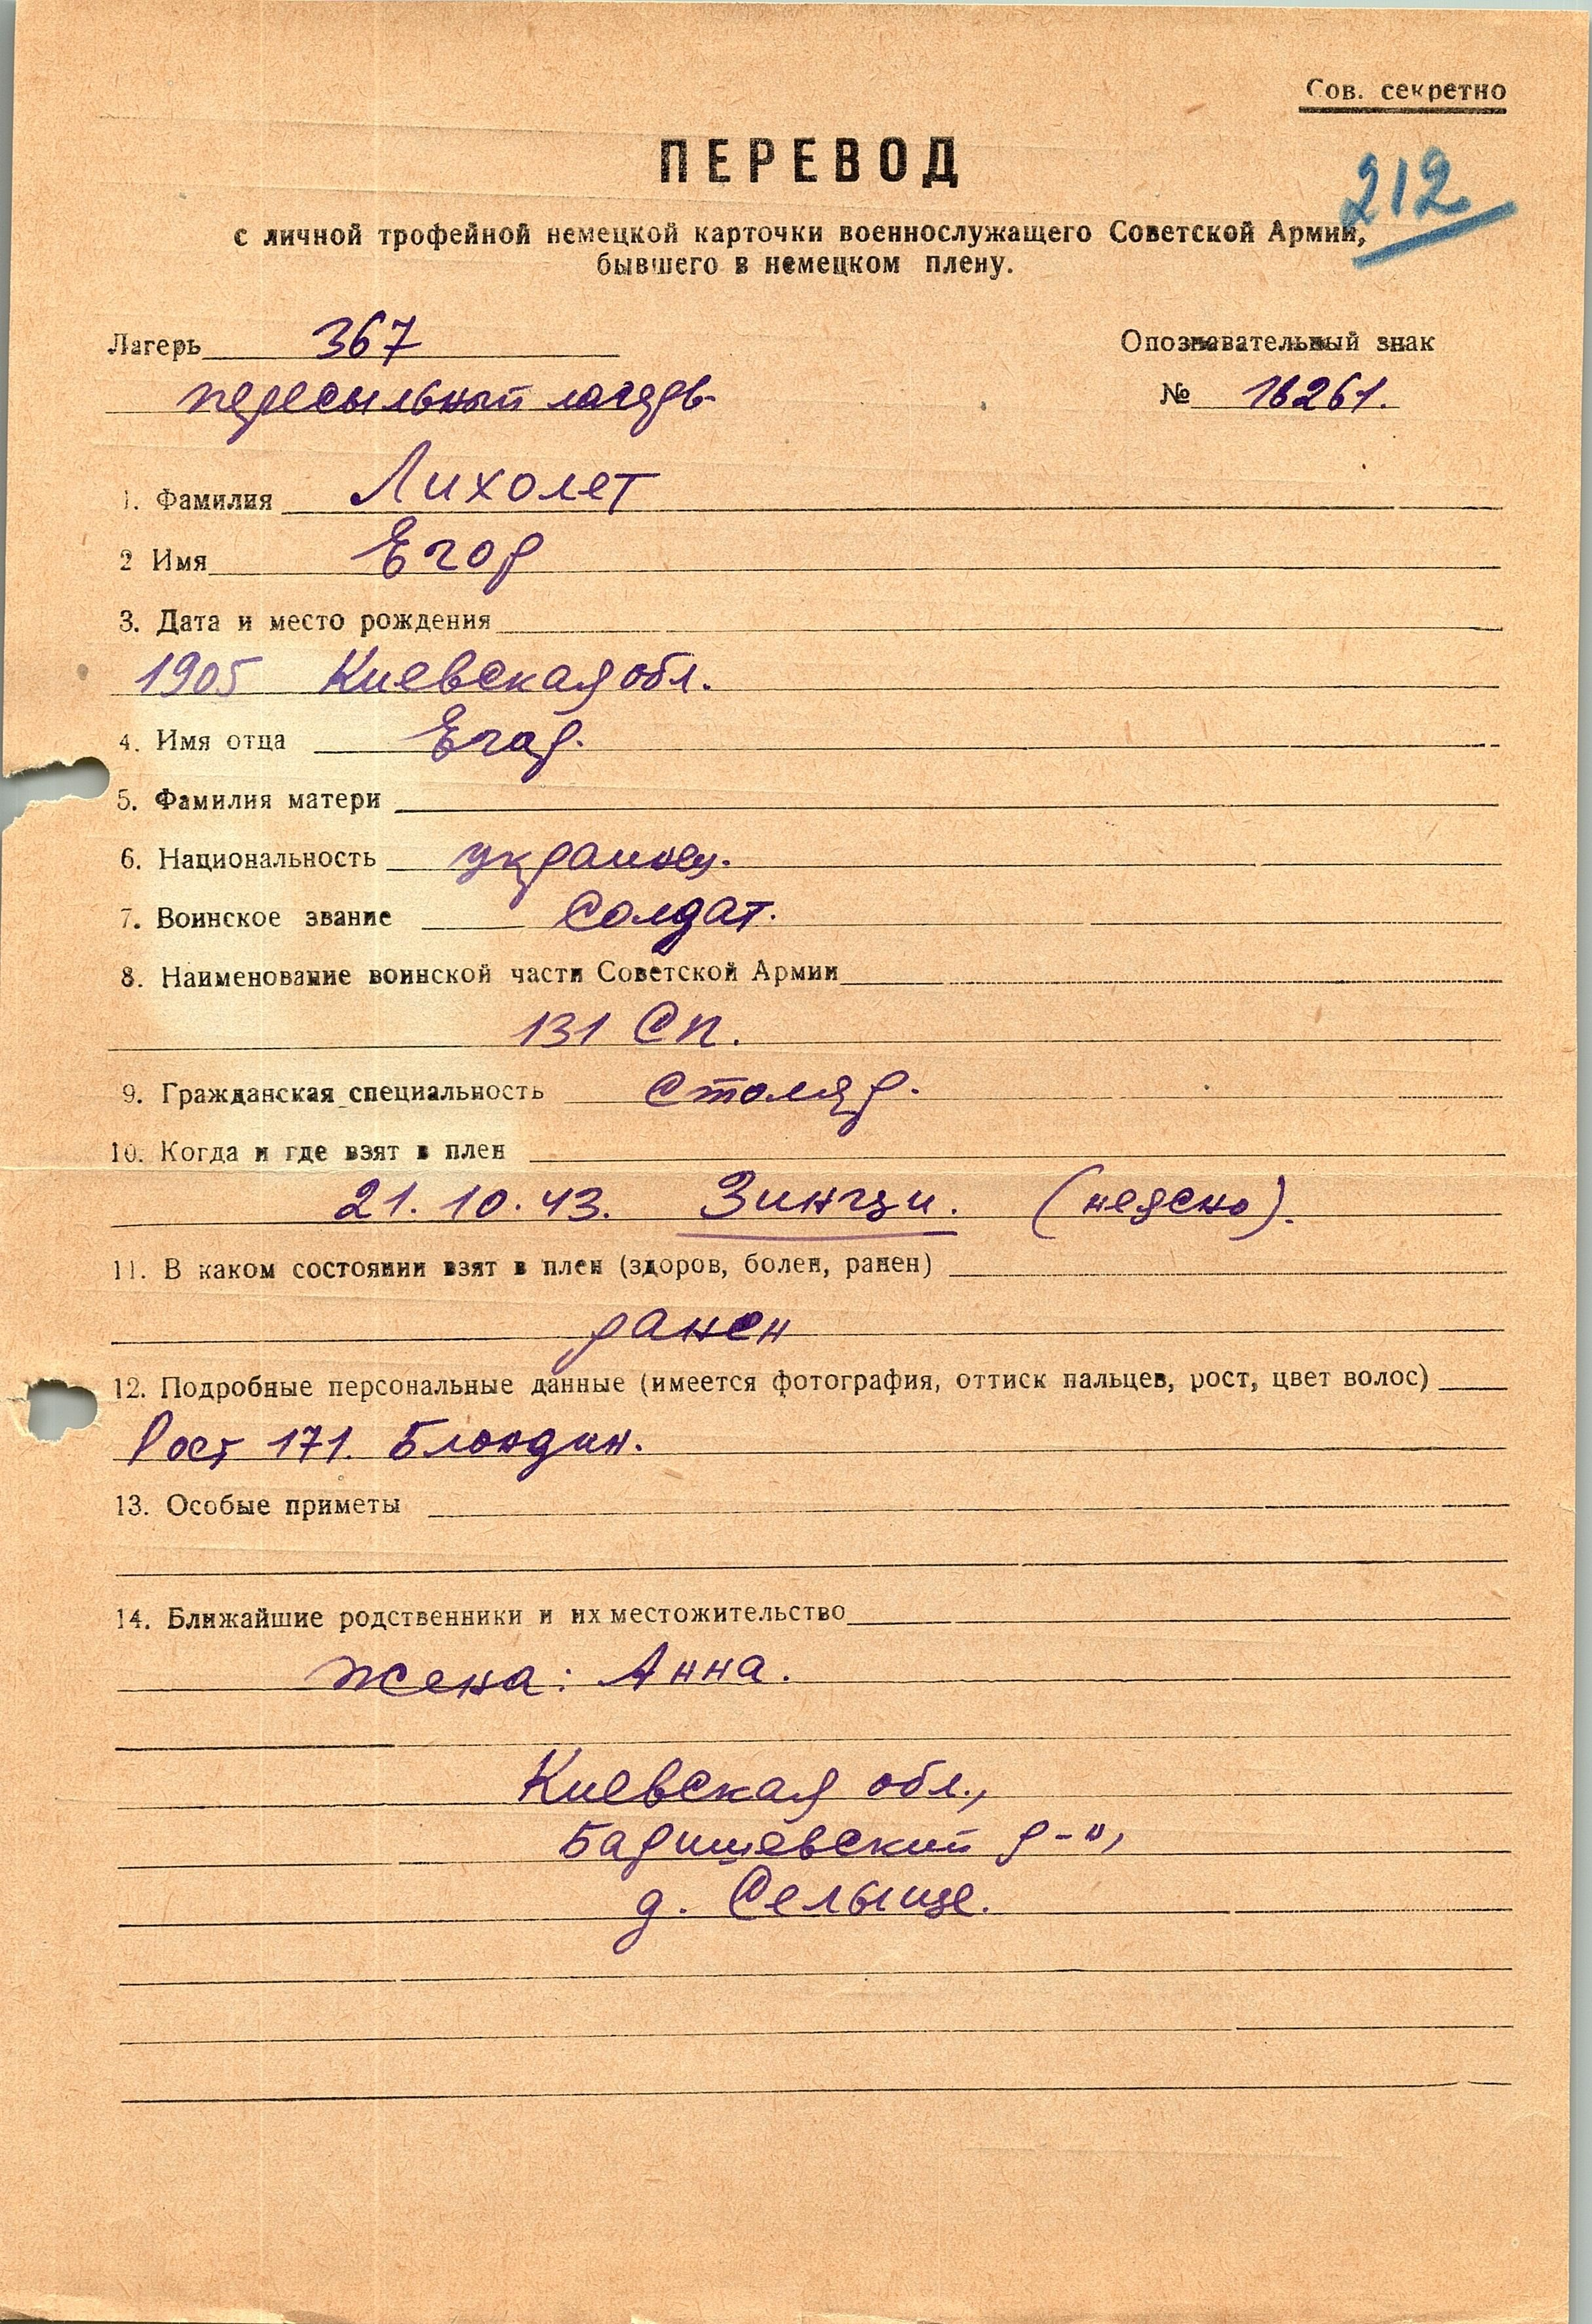 Сов. секретно
ПЕРЕВОД
212
с личной трофейной немецкой карточки военнослужащего Советской Армии,
бывшего в немецком плену.
Лагерь 367
Опознавательный знак
пересыльный лагерь
№ 18261.
1. Фамилия Лихолет
2 Имя Егор
3. Дата и место рождения
1905 Киевская обл.
4. Имя отца Егор.
5. Фамилия матери
6. Национальность украинец.
7. Воинское звание Солдат.
8. Наименование воинской части Советской Армии
131 СП.
9. Гражданская специальность Столяр.
10. Когда и где взят в плен
21. 10. 43. Зингзи. (неясно).
11. В каком состоянии взят в плен (здоров, болен, ранен)
ранен
12. Подробные персональные данные (имеется фотография, оттиск пальцев, рост, цвет волос)
Рост 171. Блондин.
13. Особые приметы
14. Ближайшие родственники и их местожительство
Жена: Анна.
Киевская обл.,
Баришевский р-н,
д. Селыще.